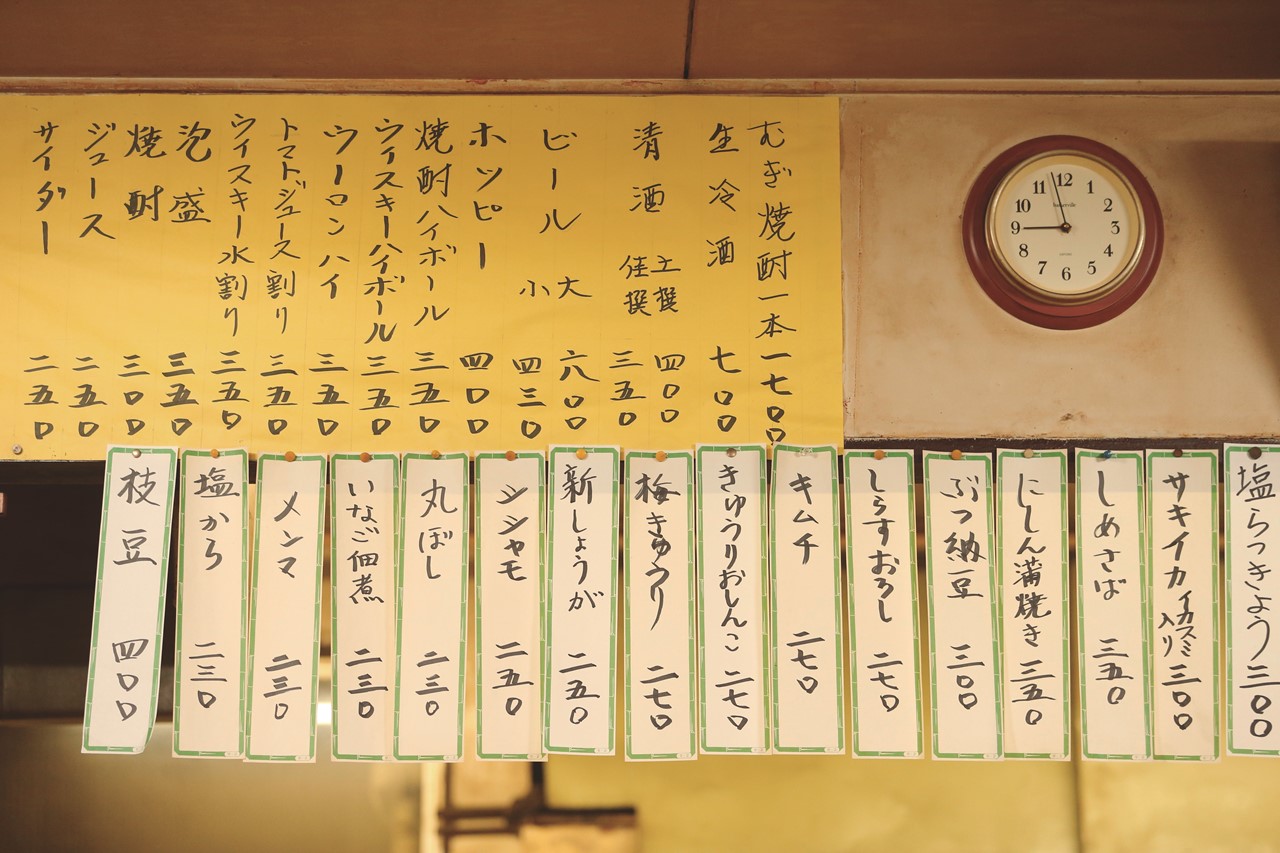 むぎ焼酎一本 一七〇〇
生冷酒 七〇〇
清酒
上撰 四〇〇
佳撰 三五〇
ビール
大 六〇〇
小 四三〇
ホッピー 四〇〇
焼酎ハイボール 三五〇
ウイスキーハイボール 三五〇
ウーロンハイ 三五〇
トマトジュース割り 三五〇
ウイスキー水割り 三五〇
泡盛 三五〇
焼酎 三〇〇
ジュース 二五〇
サイダー 二五〇
塩らっきょう 三〇〇
サキイカ イカスミ入り 三〇〇
しめさば 三五〇
にしん蒲焼き 三五〇
ぶつ納豆 三〇〇
しらすおろし 二七〇
キムチ 二七〇
きゅうりおしんこ 二七〇
梅きゅうり 二七〇
新しょうが 二五〇
シシャモ 二五〇
丸ぼし 二三〇
いなご佃煮 二三〇
メンマ 二三〇
塩から 二三〇
枝豆 四〇〇
12
1
2
3
4
5
6
7
8
9
10
11